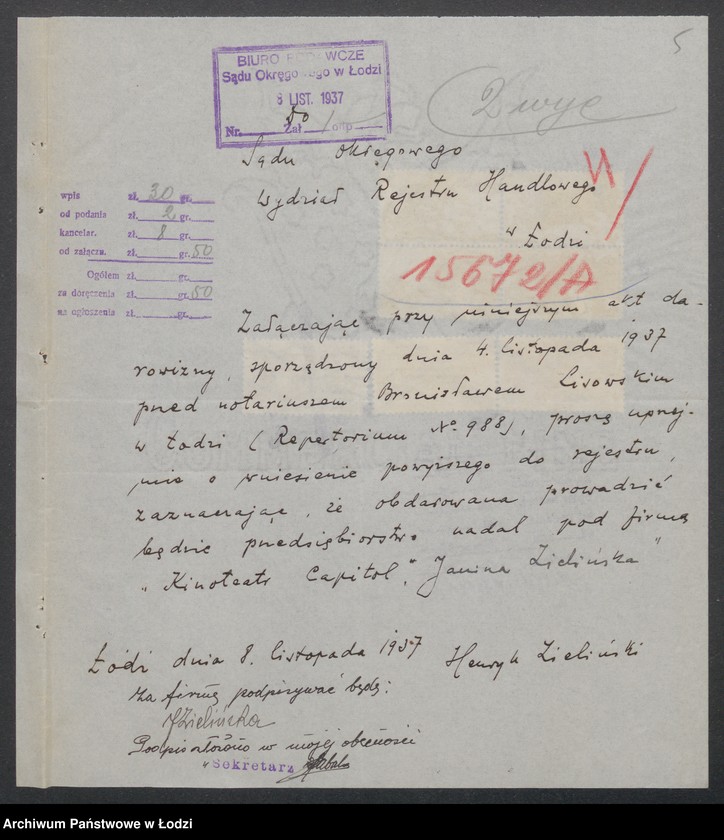 5
BIURO PODAWCZE
Sądu Okręgowego w Łodzi
8 LIST. 1937
50
Nr. Zał / odp
2 wyc
Sądu Okręgowego
Wydział Rejestru Handlowego
w Łodzi
15672/A
wpis zł. 30 gr.
od podania zł. 2 gr.
kancelar. zł. 8 gr.
od załącz. zł. gr. 50
Ogółem zł. gr.
za doręczenia zł. gr. 50
na ogłoszenia zł. gr.
Załączając przy niniejszym akt da-
rowizny, sporządzony dnia 4. listopada 1937
przed notariuszem Bronisławem Lisowskim
w Łodzi (Repertorium No. 988), proszę uprzej-
mie o wniesienie powyższego do rejestru,
zaznaczając, że obdarowana prowadzić
będzie przedsiębiorstwo nadal pod firmą
"Kinoteatr Capitol", Janina Zielińska"
Łódź dnia 8. listopada 1937 Henryk Zieliński
Za firmę podpisywać będę:
JZielińska
Podpis złożono w mojej obecności
Sekretarz
Archiwum Państwowe w Łodzi